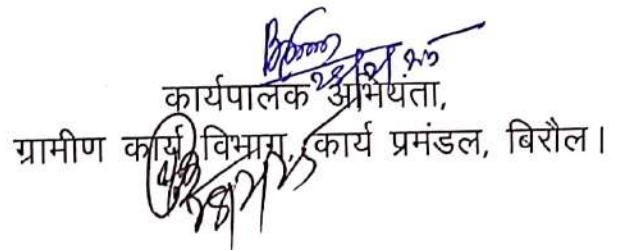 कार्यपालक अभियंता,
ग्रामीण कार्य विभाग, कार्य प्रमंडल, बिरौल।